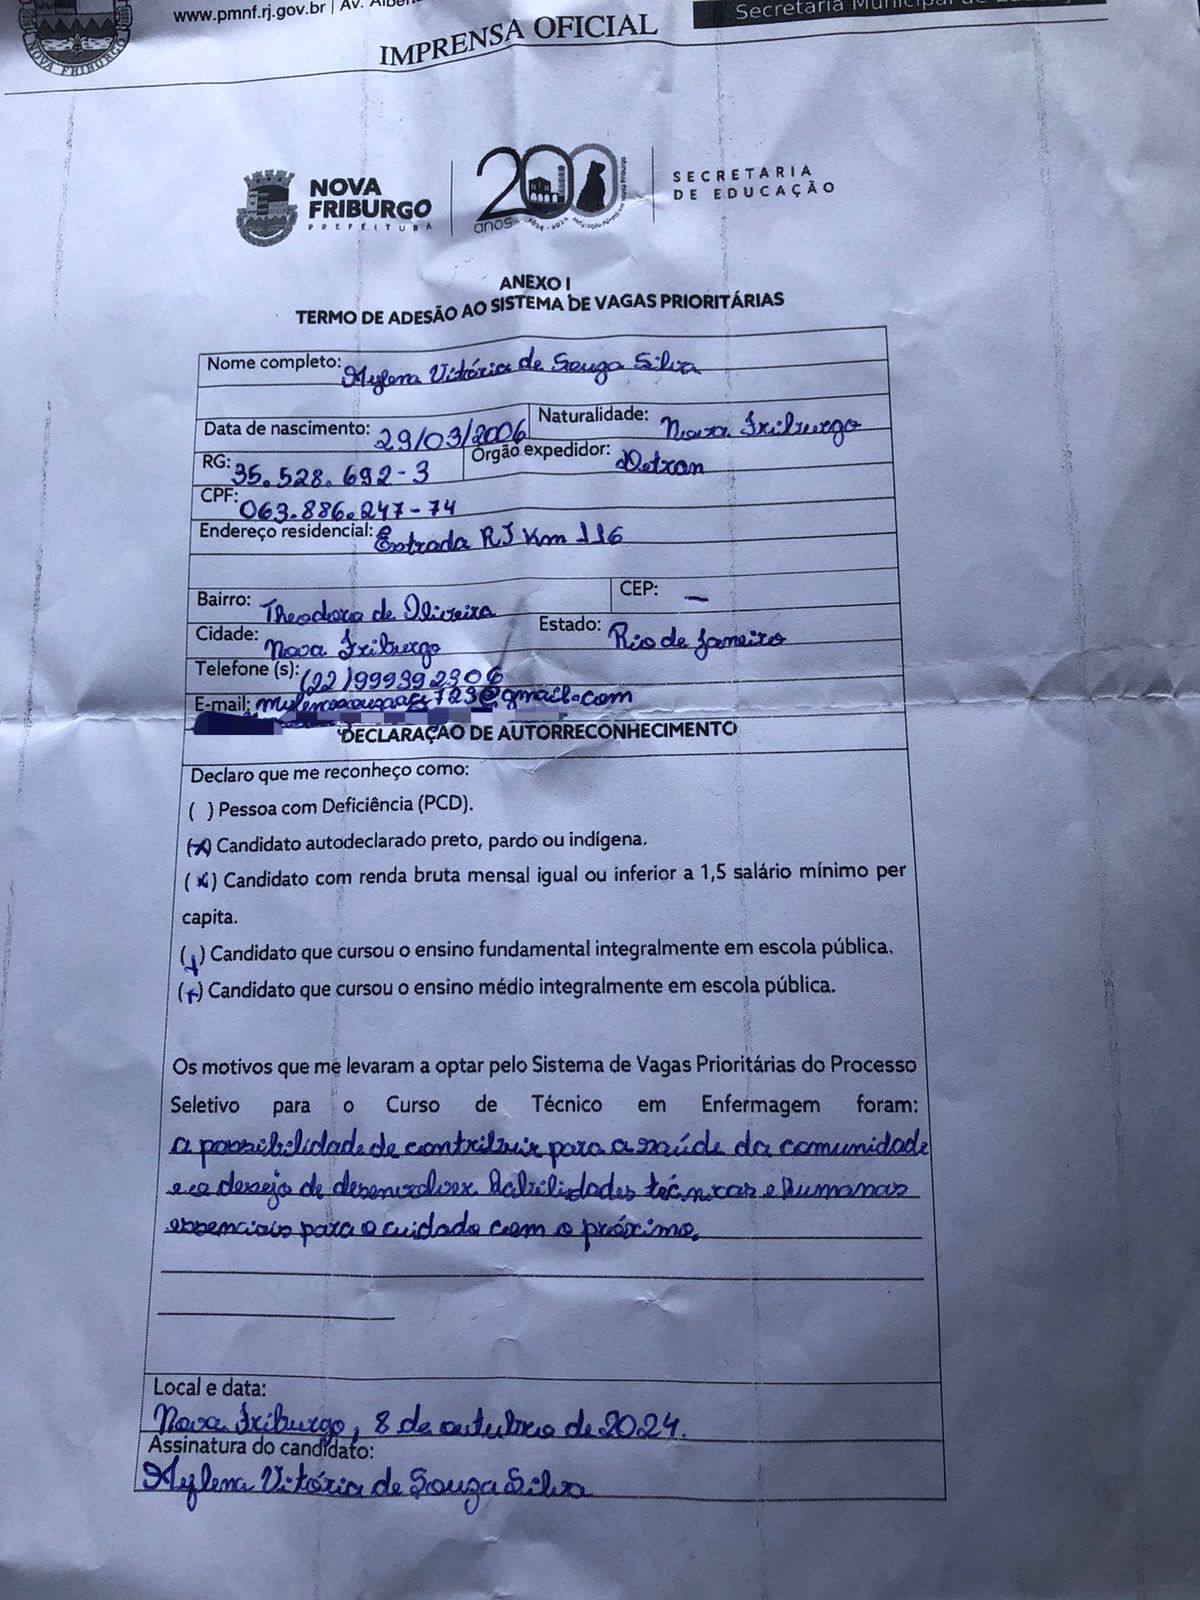 www.pmnf.rj.gov.br | Av. Alber
Secretaria Municipal de Educaç
NOVA FRIBURGO
IMPRENSA OFICIAL
NOVA
FRIBURGO
PREFEITURA
200
anos
SECRETARIA
DE EDUCAÇÃO
ANEXO I
TERMO DE ADESÃO AO SISTEMA DE VAGAS PRIORITÁRIAS
Nome completo: Mylena Vitória de Souza Silva
Data de nascimento: 29/03/2006 Naturalidade: Nova Friburgo
RG: 35.528.692-3 Órgão expedidor: Detran
CPF: 063.886.247-74
Endereço residencial: Estrada RJ Km 116
Bairro: Theodoro de Oliveira CEP: —
Cidade: Nova Friburgo Estado: Rio de Janeiro
Telefone (s): (22)999392306
E-mail:
DECLARAÇÃO DE AUTORRECONHECIMENTO
Declaro que me reconheço como:
( ) Pessoa com Deficiência (PCD).
(x) Candidato autodeclarado preto, pardo ou indígena.
(x) Candidato com renda bruta mensal igual ou inferior a 1,5 salário mínimo per
capita.
(x) Candidato que cursou o ensino fundamental integralmente em escola pública.
(x) Candidato que cursou o ensino médio integralmente em escola pública.
Os motivos que me levaram a optar pelo Sistema de Vagas Prioritárias do Processo
Seletivo para o Curso de Técnico em Enfermagem foram:
a possibilidade de contribuir para a saúde da comunidade
e o desejo de desenvolver habilidades técnicas e humanas
essenciais para o cuidado com o próximo.
Local e data:
Nova Friburgo, 8 de outubro de 2024.
Assinatura do candidato:
Mylena Vitória de Souza Silva